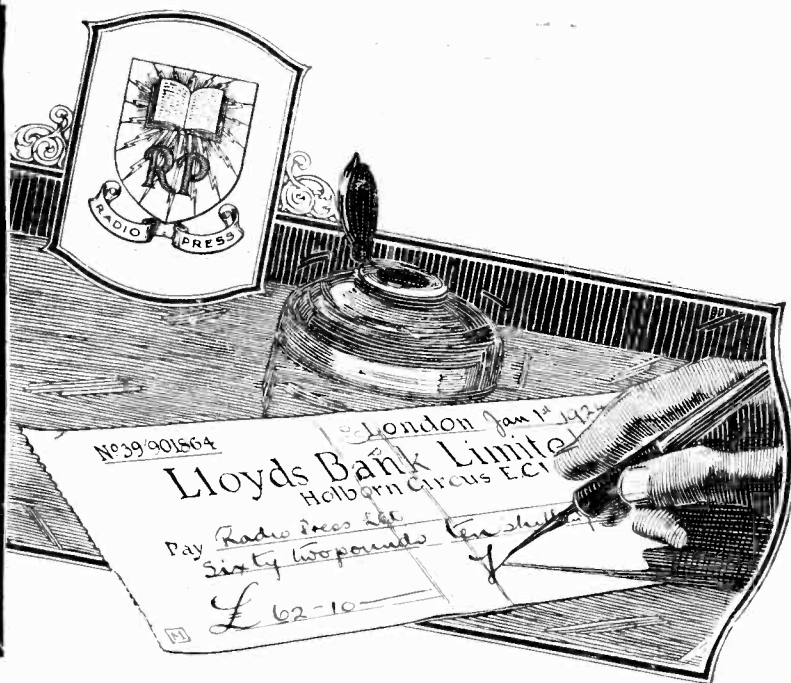 RP
RADIO PRESS
Nº 39/901864
London Jan 1st 192
Lloyds Bank Limite
Holborn Circus E.C.1
Pay Radio Press Ltd
Sixty two pounds ten shillings
£ 62-10-
M